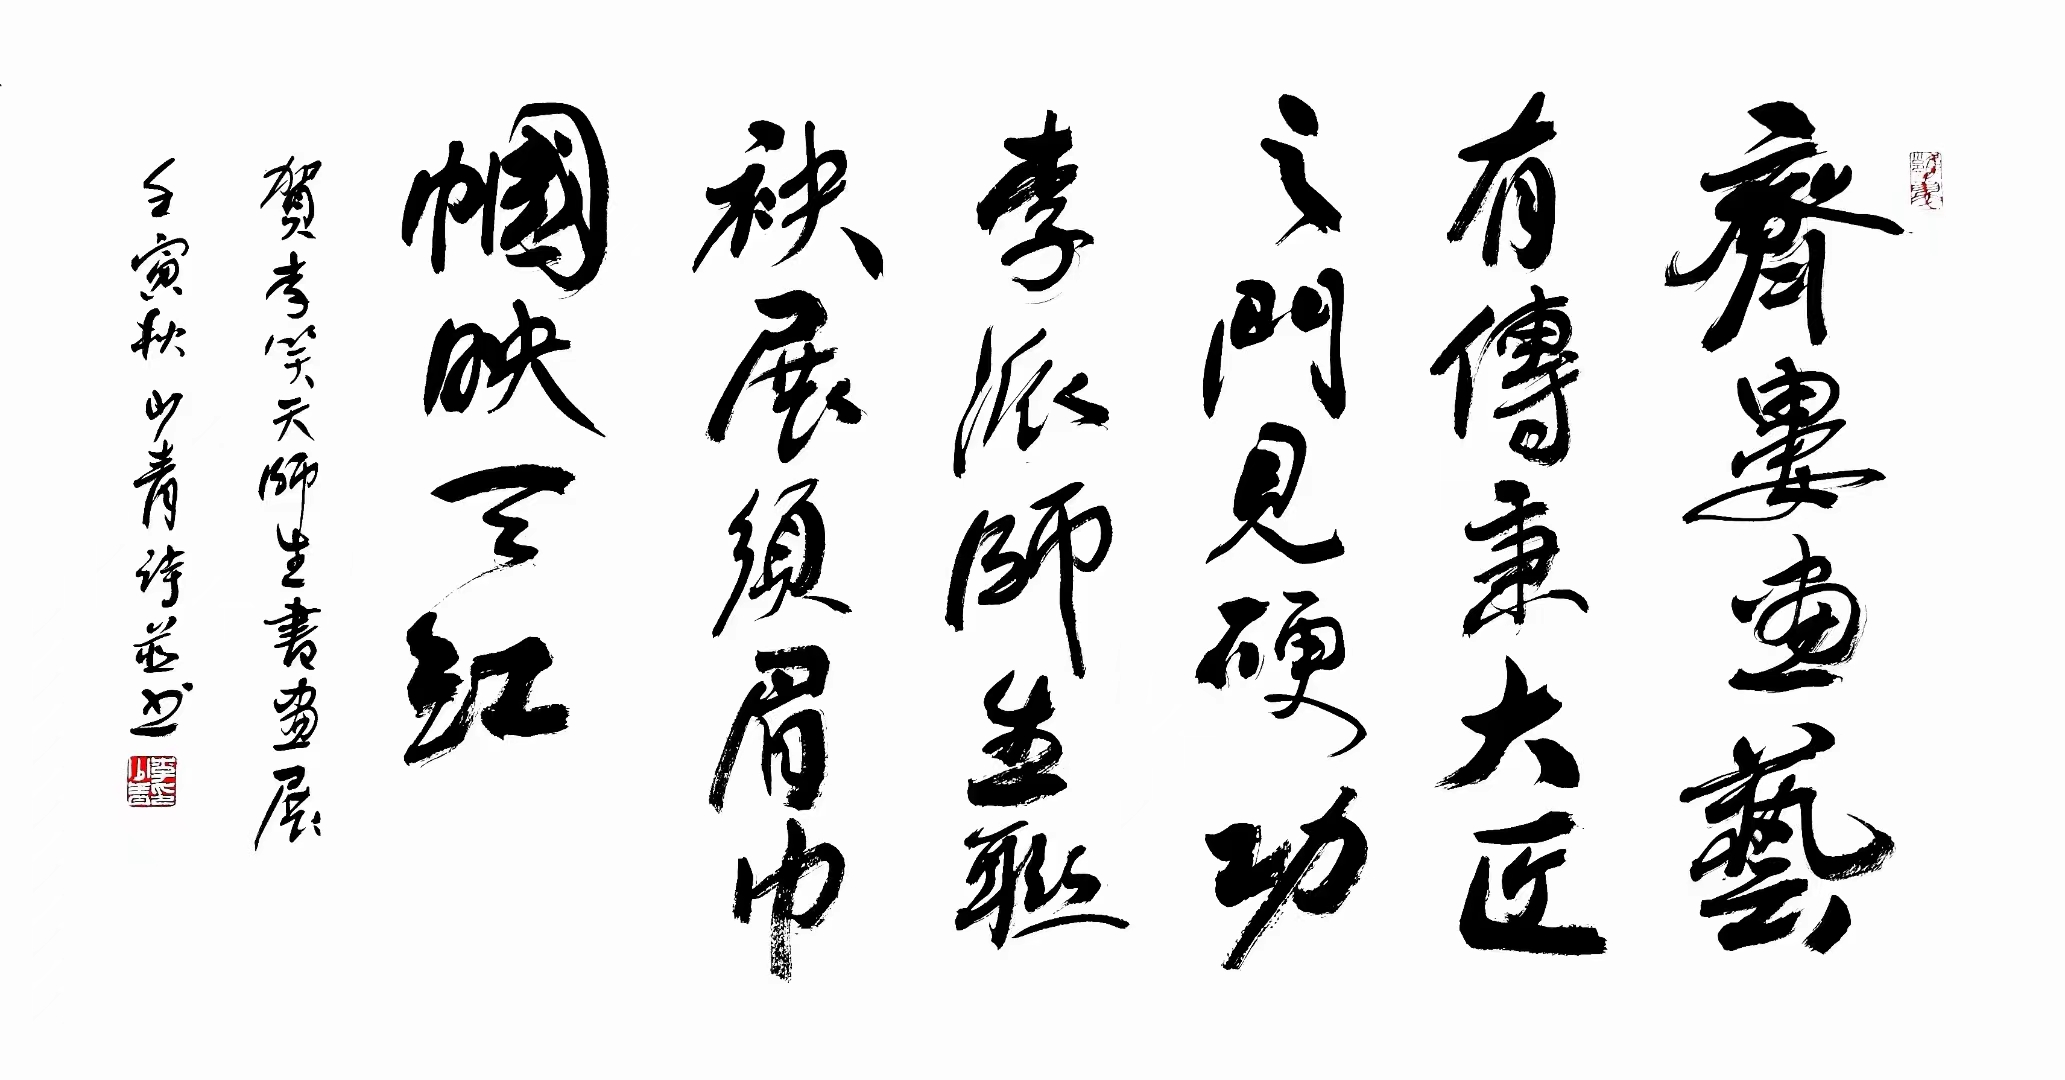 齊婁畫藝
有傳秉大匠
之門見硬功
李派師生聯
袂展須眉巾
幗映天紅
賀李笑天師生書畫展
壬寅秋山青詩並书